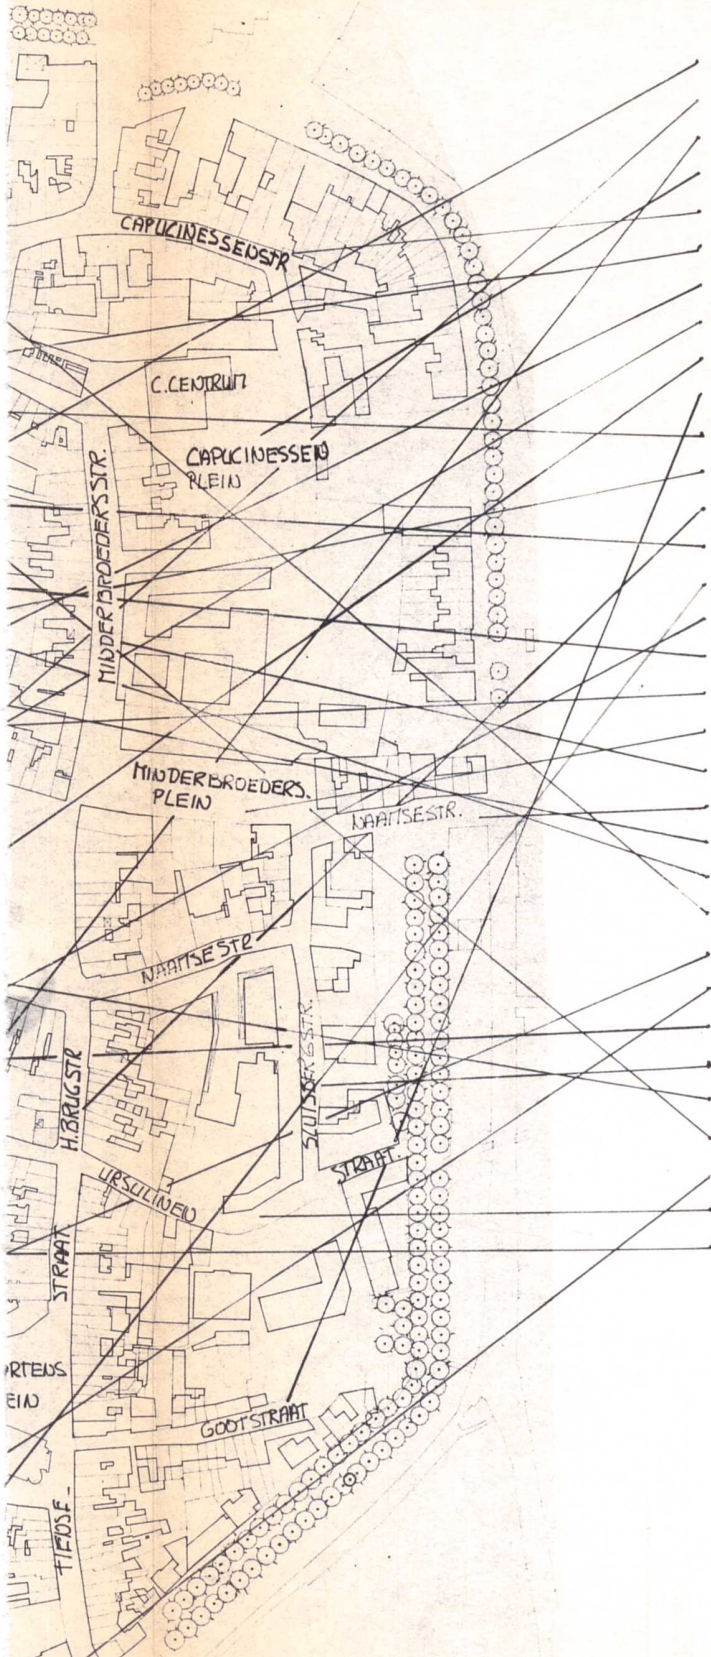 CAPUCINESSENSTR
C.CENTRUM
CAPUCINESSEN
PLEIN
MINDERBROEDERSSTR.
MINDERBROEDERS.
PLEIN
NAAMSESTR.
NAAMSESTR
H.BRUGSTR
SLUITSBERGSSTR.
STRAAT.
URSULINEN
STRAAT
RTENS
EIN
GOOTSTRAAT